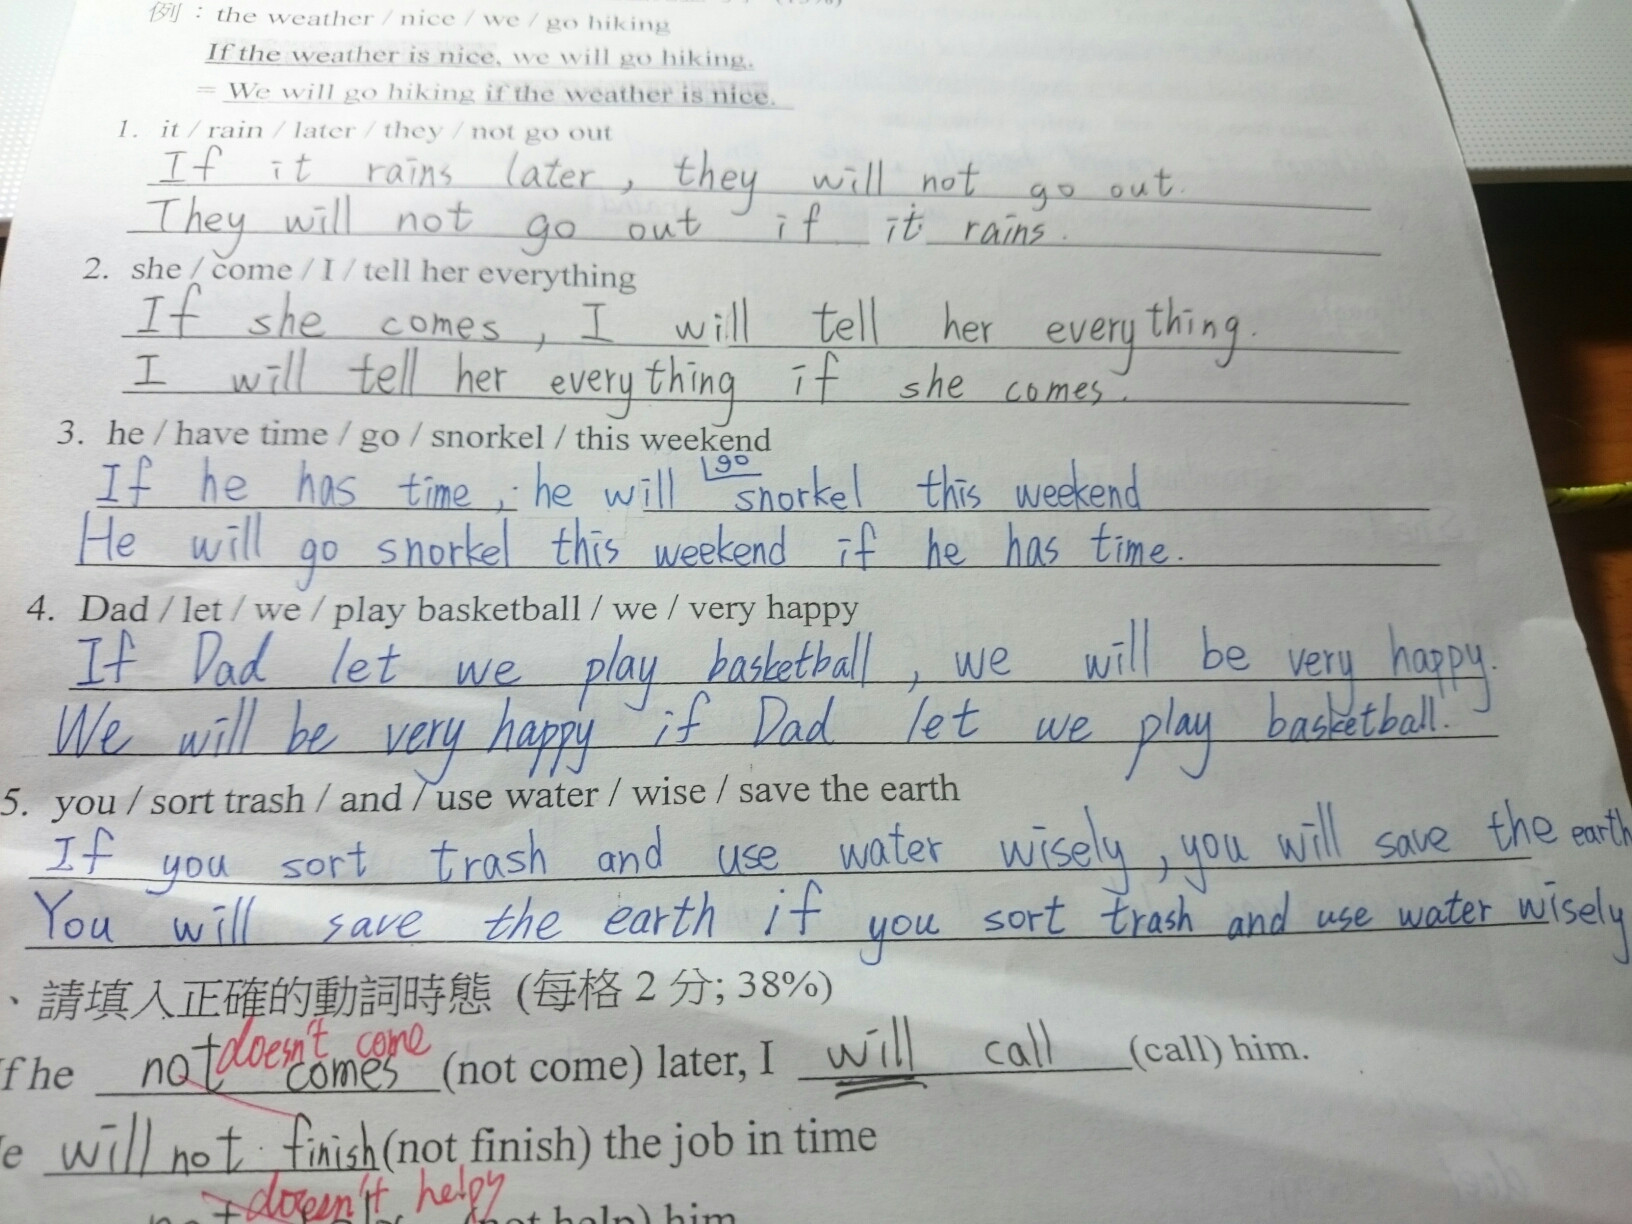 例：the weather / nice / we / go hiking
If the weather is nice, we will go hiking.
= We will go hiking if the weather is nice.
1. it / rain / later / they / not go out
If it rains later, they will not go out.
They will not go out if it rains.
2. she / come / I / tell her everything
If she comes, I will tell her everything.
I will tell her everything if she comes.
3. he / have time / go / snorkel / this weekend
go
If he has time, he will snorkel this weekend
He will go snorkel this weekend if he has time.
4. Dad / let / we / play basketball / we / very happy
If Dad let we play basketball, we will be very happy.
We will be very happy if Dad let we play basketball.
5. you / sort trash / and / use water / wise / save the earth
If you sort trash and use water wisely, you will save the earth
You will save the earth if you sort trash and use water wisely
、請填入正確的動詞時態 (每格 2 分; 38%)
doesn't come
f he not comes (not come) later, I will call (call) him.
e will not finish (not finish) the job in time
doesn't helpy
not help) him